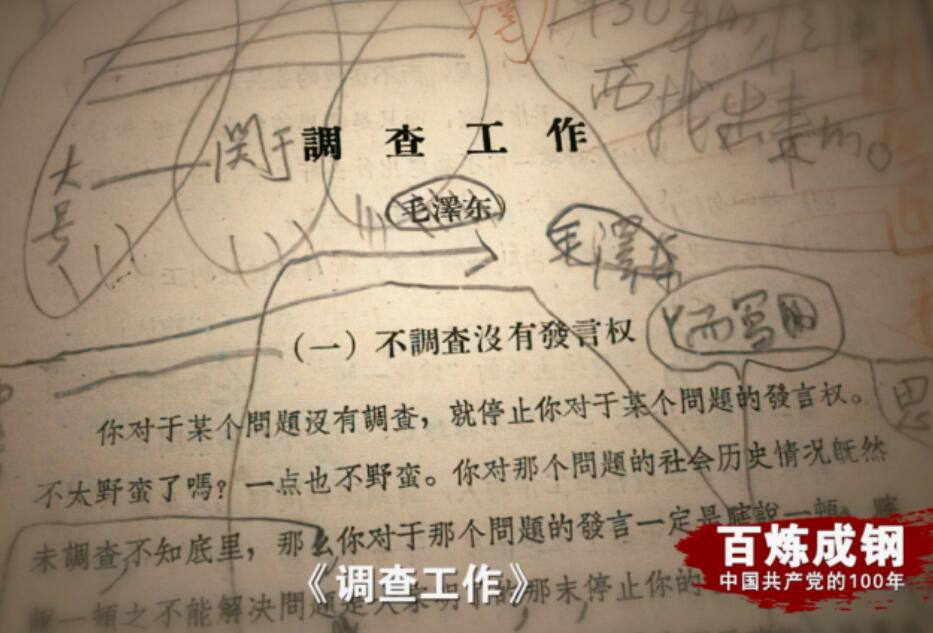 大号
关于調查工作
西找出来的。
毛澤东
毛澤东
而写的
（一）不調查沒有發言权
你对于某个問題沒有調查，就停止你对于某个問題的發言权。
不太野蛮了嗎？一点也不野蛮。你对那个問題的社会历史情况旣然
未調查不知底里，那么你对于那个問題的發言一定是瞎說一頓。瞎
說一頓之不能解决問題是大家明 的 那末停止你的
思
《调查工作》
百炼成钢
中国共产党的100年